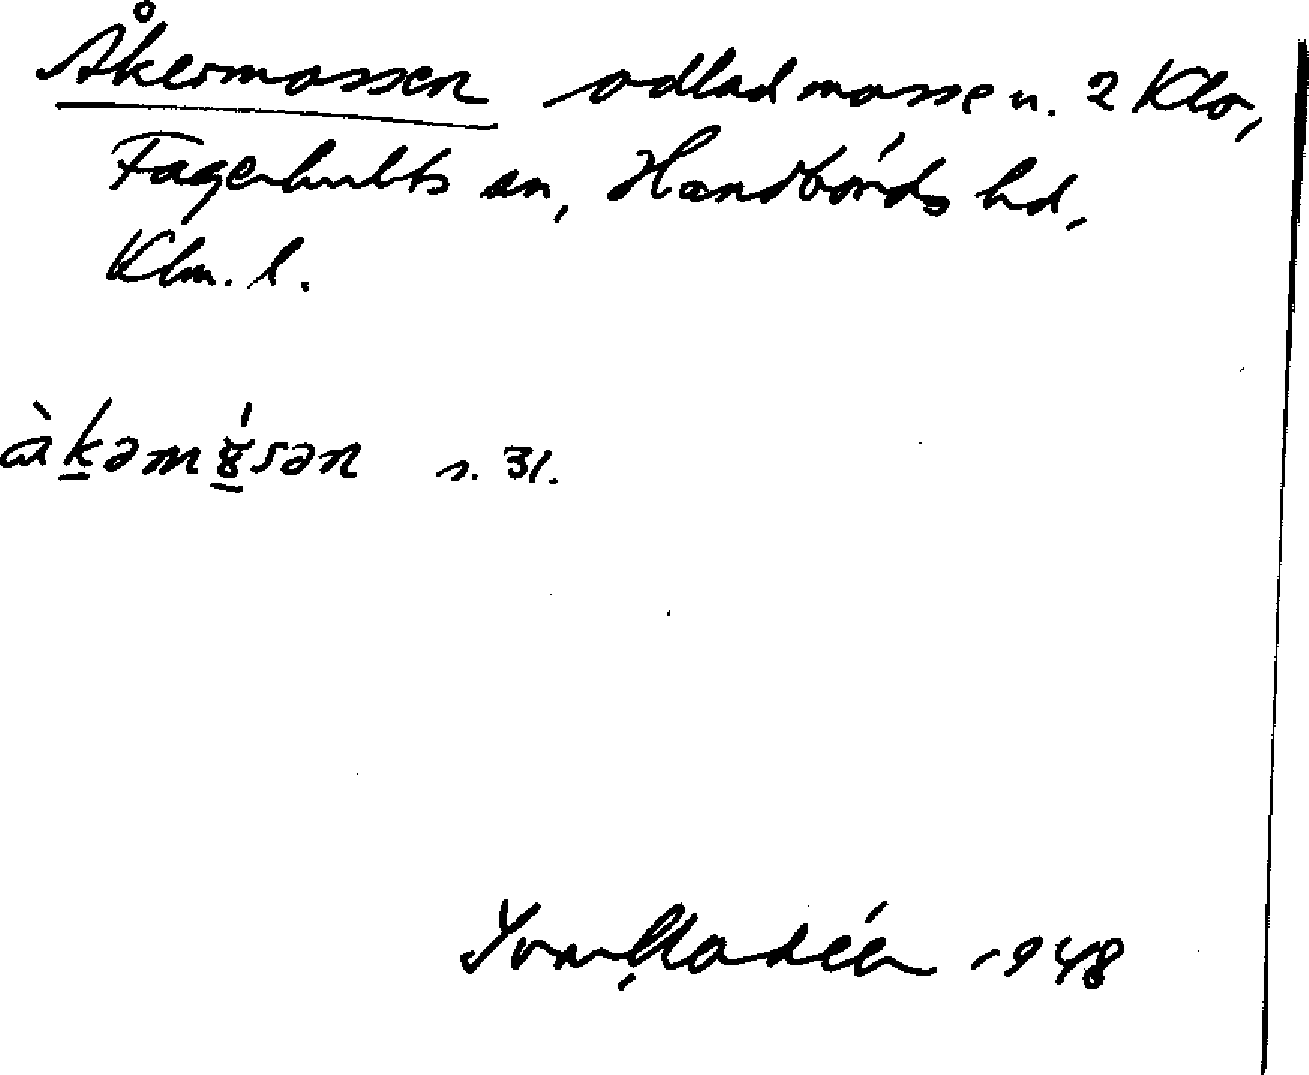 Åkermossen odlad mosse u. 2 Klo,
Fagerhults sn, Handbörds hd,
Klm. l.
s. 31.
Ivar Modéer 1948